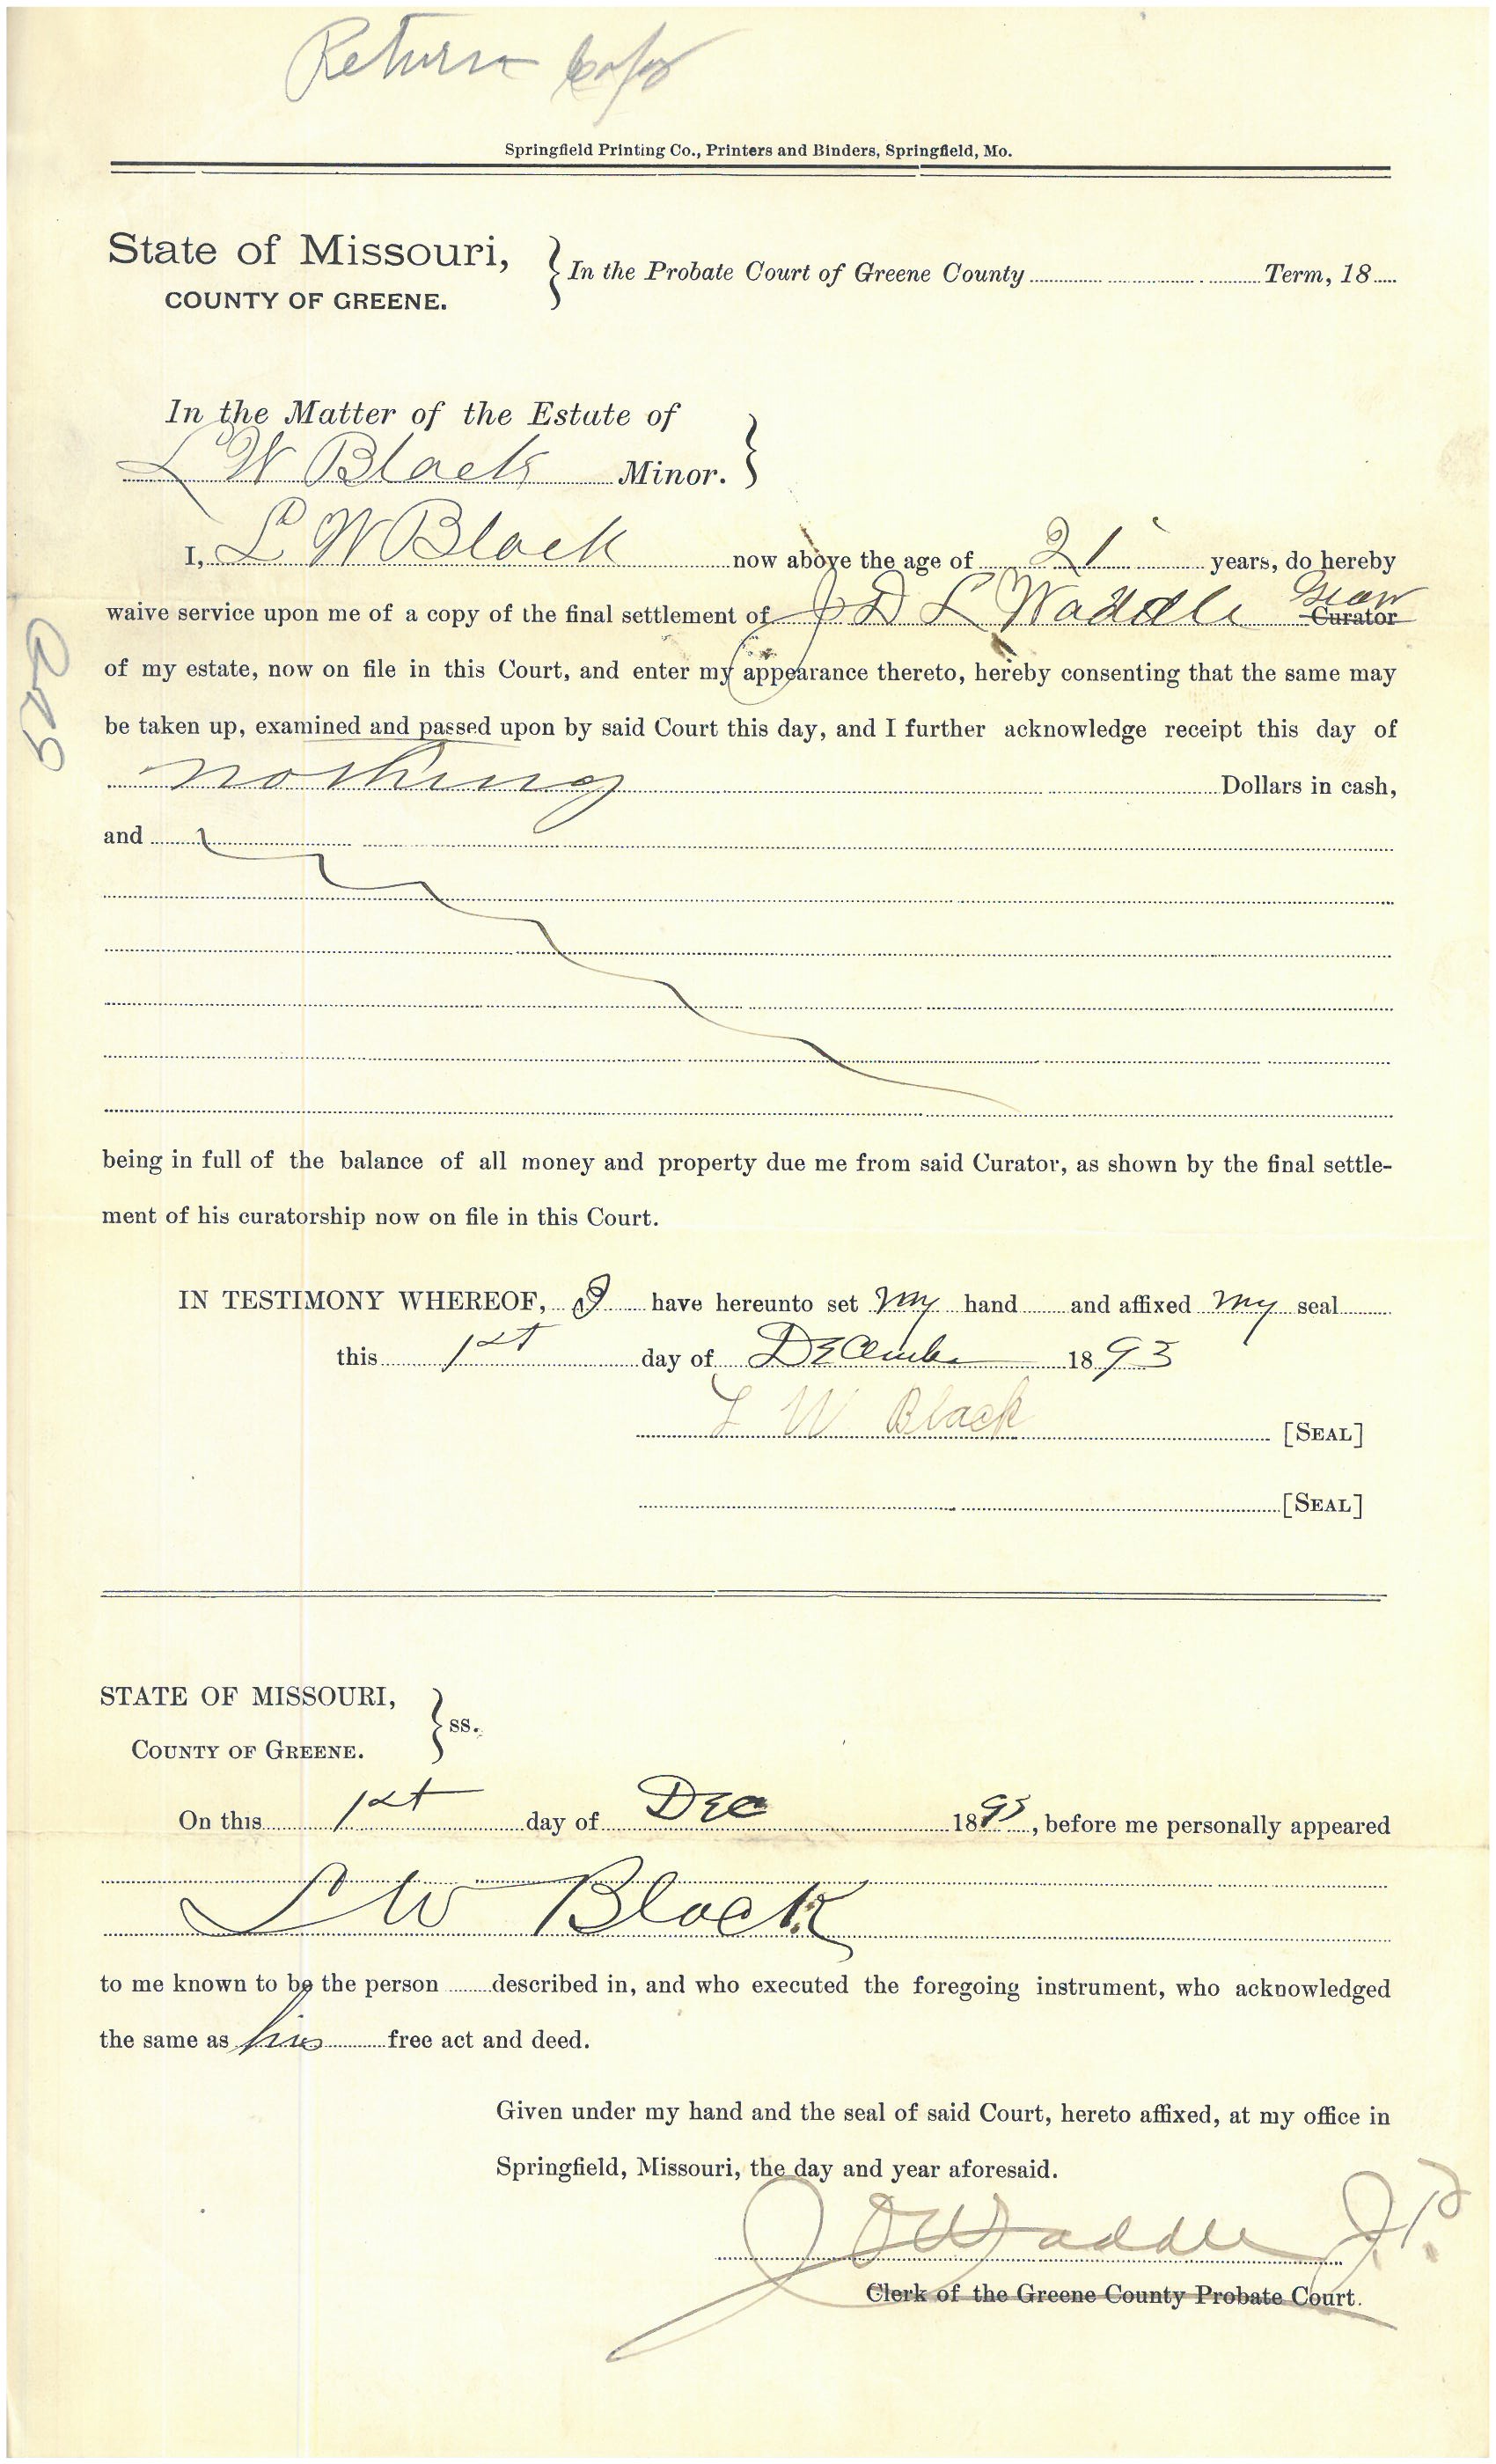 Return Copy
Springfield Printing Co., Printers and Binders, Springfield, Mo.
State of Missouri,
COUNTY OF GREENE.
In the Probate Court of Greene County Term, 18
In the Matter of the Estate of
L W Black Minor.
I, L W Black now above the age of 21 years, do hereby
waive service upon me of a copy of the final settlement of J D L Waddle Curator
of my estate, now on file in this Court, and enter my appearance thereto, hereby consenting that the same may
be taken up, examined and passed upon by said Court this day, and I further acknowledge receipt this day of
nothing Dollars in cash,
and
being in full of the balance of all money and property due me from said Curator, as shown by the final settle-
ment of his curatorship now on file in this Court.
IN TESTIMONY WHEREOF, I have hereunto set my hand and affixed my seal
this 1st day of December 1893
L W Black [SEAL]
[SEAL]
STATE OF MISSOURI,
COUNTY OF GREENE.
ss.
On this 1st day of Dec 1893, before me personally appeared
L W Black
to me known to be the person described in, and who executed the foregoing instrument, who acknowledged
the same as his free act and deed.
Given under my hand and the seal of said Court, hereto affixed, at my office in
Springfield, Missouri, the day and year aforesaid.
Waddle J.P.
Clerk of the Greene County Probate Court.